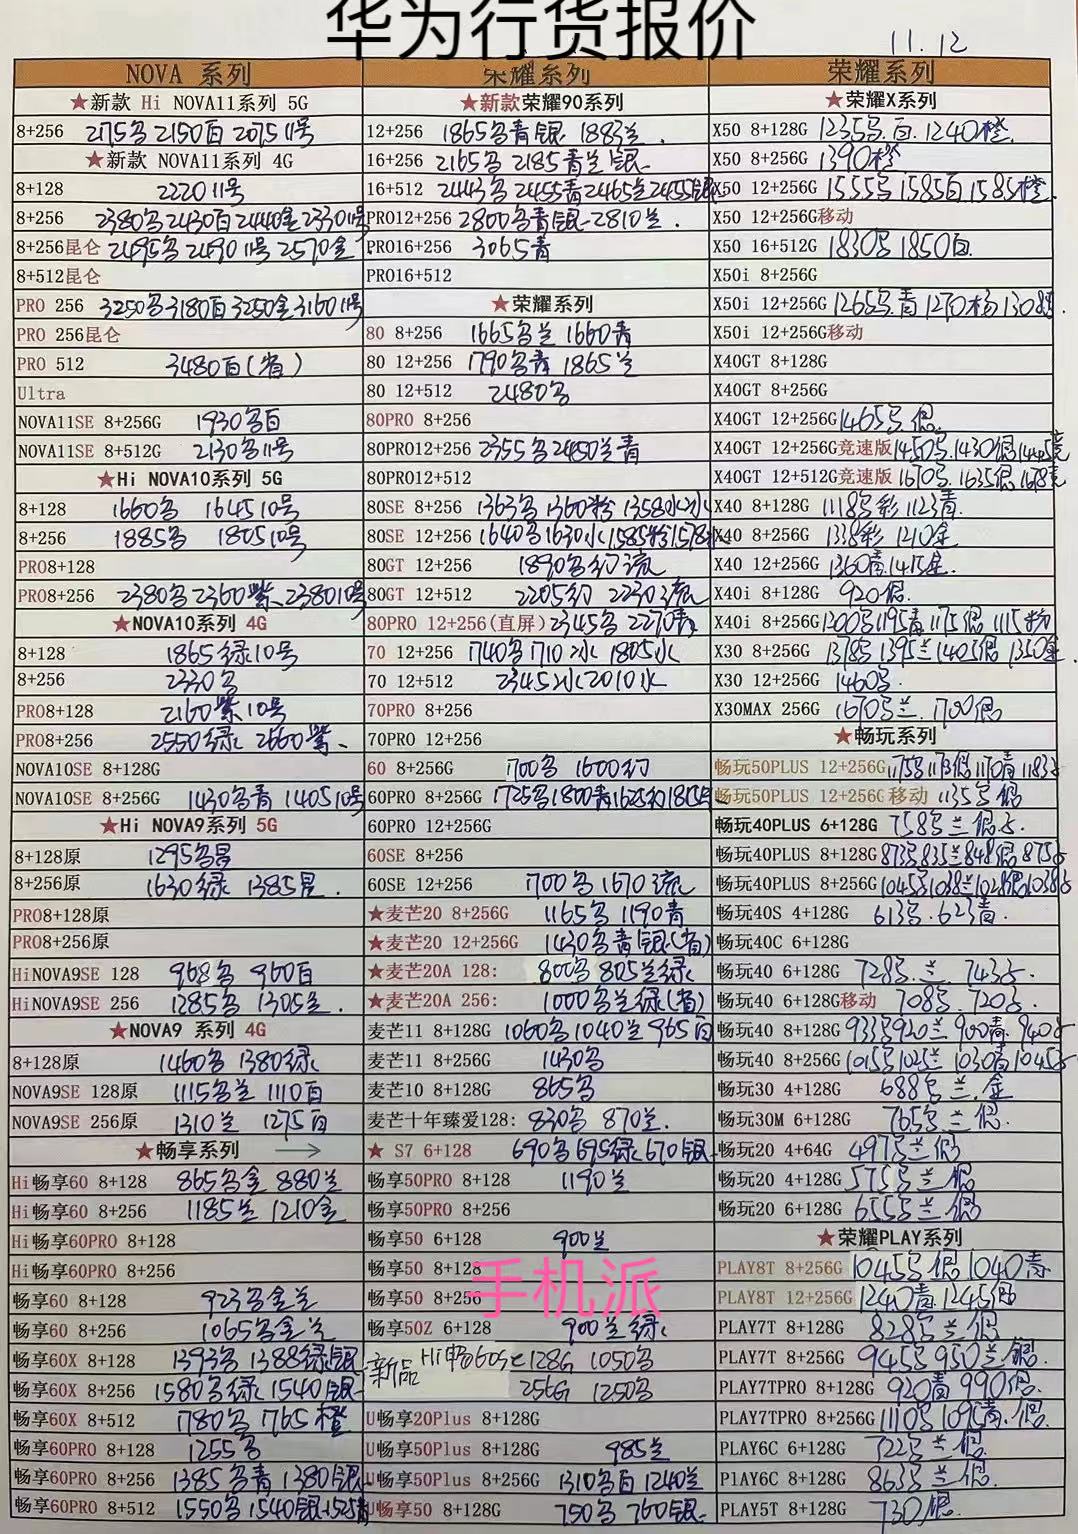 华为行货报价
11.12
NOVA 系列
★新款 Hi NOVA11系列 5G
8+256 2175名 2150百 2075 11号
★新款 NOVA11系列 4G
8+128 2220 11号
8+256 2380名 2430百 2440金 2330 11号
8+256昆仑 2495名 2490 11号 2570金
8+512昆仑
PRO 256 3250名 3180百 3250金 3160 11号
PRO 256昆仑
PRO 512 3480百(省)
Ultra
NOVA11SE 8+256G 1930名百
NOVA11SE 8+512G 2130名 11号
★Hi NOVA10系列 5G
8+128 1660名 1645 10号
8+256 1885名 1805 10号
PRO8+128
PRO8+256 2380名 2360紫 2380 10号
★NOVA10系列 4G
8+128 1865绿 10号
8+256 2330名
PRO8+128 2160紫 10号
PRO8+256 2550绿 2660紫
NOVA10SE 8+128G
NOVA10SE 8+256G 1430名青 1405 10号
★Hi NOVA9系列 5G
8+128原 1295名星
8+256原 1630绿 1385星.
PRO8+128原
PRO8+256原
HiNOVA9SE 128 968名 960百
HiNOVA9SE 256 1285名 1305兰
★NOVA9 系列 4G
8+128原 1460名 1380绿
NOVA9SE 128原 1115名兰 1110百
NOVA9SE 256原 1310兰 1275百
★畅享系列 →
Hi畅享60 8+128 865名金 880兰
Hi畅享60 8+256 1185兰 1210金
Hi畅享60PRO 8+128
Hi畅享60PRO 8+256
畅享60 8+128 923名金兰
畅享60 8+256 1065名金兰
畅享60X 8+128 1393名 1388绿银
畅享60X 8+256 1580名绿 1540银
畅享60X 8+512 1780名 1765橙
畅享60PRO 8+128 1255名
畅享60PRO 8+256 1385名青 1380银
畅享60PRO 8+512 1550名 1540银 1525青
荣耀系列
★新款荣耀90系列
12+256 1865名青银 1883兰.
16+256 2165名 2185青兰银
16+512 2443名 2455青 2465兰 2455银
PRO12+256 2800名青银 2810兰.
PRO16+256 3065青
PRO16+512
★荣耀系列
80 8+256 1665名兰 1660青
80 12+256 1790名青 1865兰
80 12+512 2480名
80PRO 8+256
80PRO12+256 2355名 2450兰青
80PRO12+512
80SE 8+256 1363名 1360粉 1358水冰
80SE 12+256 1640名 1630水 1585粉 1578冰
80GT 12+256 1890名幻流
80GT 12+512 2205幻 2230流
80PRO 12+256(直屏) 2345名 2270青
70 12+256 1740名 1710冰 1805水
70 12+512 2345冰 2010水
70PRO 8+256
70PRO 12+256
60 8+256G 1700名 1600幻
60PRO 8+256G 1725名 1800青 1625幻
60PRO 12+256G
60SE 8+256
60SE 12+256 1700名 1670流
★麦芒20 8+256G 1165名 1190青
★麦芒20 12+256G 1430名青银(省)
★麦芒20A 128: 800名 805兰绿
★麦芒20A 256: 1000名兰绿(省)
麦芒11 8+128G 1060名 1040兰 965百
麦芒11 8+256G 1430名
麦芒10 8+128G 865名
麦芒十年臻爱128: 830名 870兰.
★ S7 6+128 690名 695绿 670银
畅享50PRO 8+128 1190兰
畅享50PRO 8+256
畅享50 6+128 900兰
畅享50 8+128
畅享50 8+256
手机派
畅享50Z 6+128 900兰绿
新品 Hi畅60Se 128G 1050名
256G 1250名
U畅享20Plus 8+128G
U畅享50Plus 8+128G 985兰
U畅享50Plus 8+256G 1310名百 1240兰
U畅享50 8+128G 750名 760银
荣耀系列
★荣耀X系列
X50 8+128G 1235名.百. 1240橙.
X50 8+256G 1390橙
X50 12+256G 1555名 1585百 1585橙.
X50 12+256G移动
X50 16+512G 1830名 1850百.
X50i 8+256G
X50i 12+256G 1265名.青 1270杨 1308
X50i 12+256G移动
X40GT 8+128G
X40GT 8+256G
X40GT 12+256G 1465名 银.
X40GT 12+256G竞速版 1450名. 1430银 1445竞
X40GT 12+512G竞速版 1670名. 1635银 1678竞
X40 8+128G 1118名彩 1123青.
X40 8+256G 1338彩 1210金
X40 12+256G 1360青. 1415金.
X40i 8+128G 920银.
X40i 8+256G 1200名 1195青 1175银 1115粉
X30 8+256G 1378名 1395兰 1405银 1350金
X30 12+256G 1460名.
X30MAX 256G 1670名兰. 1700银
★畅玩系列
畅玩50PLUS 12+256G 1175名 1173银 1170青 1183
畅玩50PLUS 12+256G 移动 1135名 银
畅玩40PLUS 6+128G 758名 兰 银
畅玩40PLUS 8+128G 873名 835兰 848银 875
畅玩40PLUS 8+256G 1045名 1038兰 1038
畅玩40S 4+128G 613名. 623青.
畅玩40C 6+128G
畅玩40 6+128G 728名.兰 743
畅玩40 6+128G移动 708名. 720
畅玩40 8+128G 933名 920兰 900青. 940
畅玩40 8+256G 1015名 1025兰 1030青 1045
畅玩30 4+128G 688名兰.金
畅玩30M 6+128G 765名兰银.
畅玩20 4+64G 497名兰银
畅玩20 4+128G 575名兰银
畅玩20 6+128G 655名兰银
★荣耀PLAY系列
PLAY8T 8+256G 1045名银 1040青
PLAY8T 12+256G 1240青 1245银
PLAY7T 8+128G 828名兰银
PLAY7T 8+256G 945名 950兰银.
PLAY7TPRO 8+128G 920青 990银.
PLAY7TPRO 8+256G 1110名 1095青.银.
PLAY6C 6+128G 722名兰银
PlAY6C 8+128G 863名兰银.
PLAY5T 8+128G 730银.